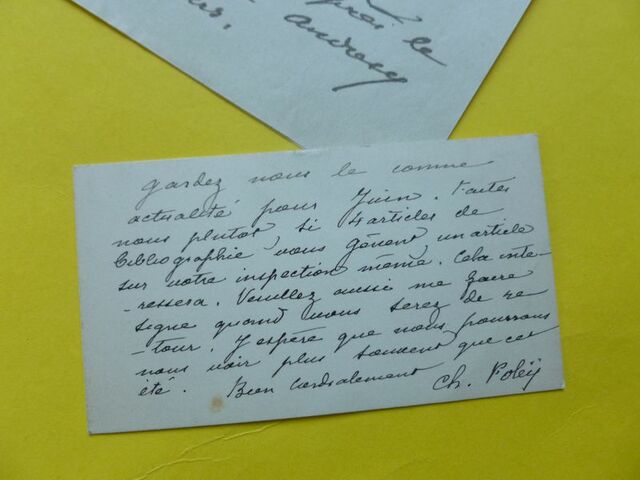 après le
Andrésy
gardez nous le comme
actualité pour Juin. Faites
nous plutot si 4 articles de
bibliographie vous gênent, un article
sur votre inspection même. Cela inte-
-ressera. Veuillez aussi me faire
signe quand vous serez de re
-tour. J'espère que nous pourrons
nous voir plus souvent que cet
été. Bien cordialement
Ch. Foleÿ